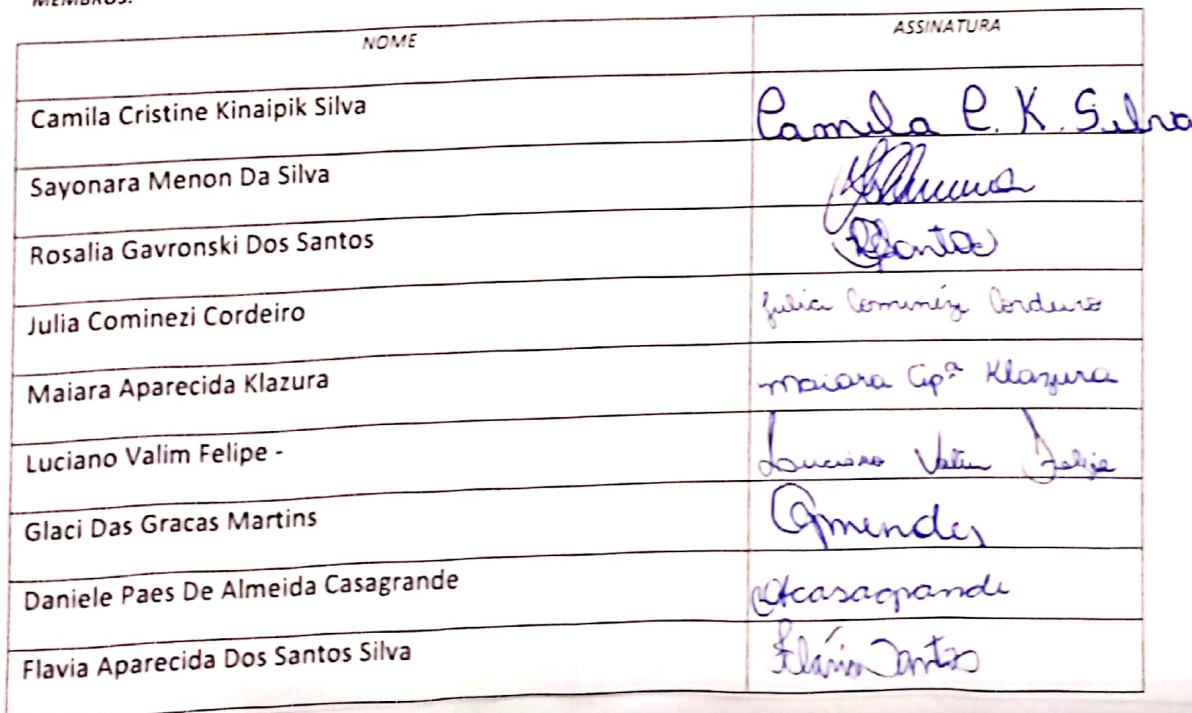 MEMBROS:
NOME ASSINATURA
Camila Cristine Kinaipik Silva Camila C. K. Silva
Sayonara Menon Da Silva
Rosalia Gavronski Dos Santos RSantos
Julia Cominezi Cordeiro Julia Cominezi Cordeiro
Maiara Aparecida Klazura Maiara Apª Klazura
Luciano Valim Felipe - Luciano Valim Felipe
Glaci Das Gracas Martins Gmendes
Daniele Paes De Almeida Casagrande casagrande
Flavia Aparecida Dos Santos Silva Flávia Santos